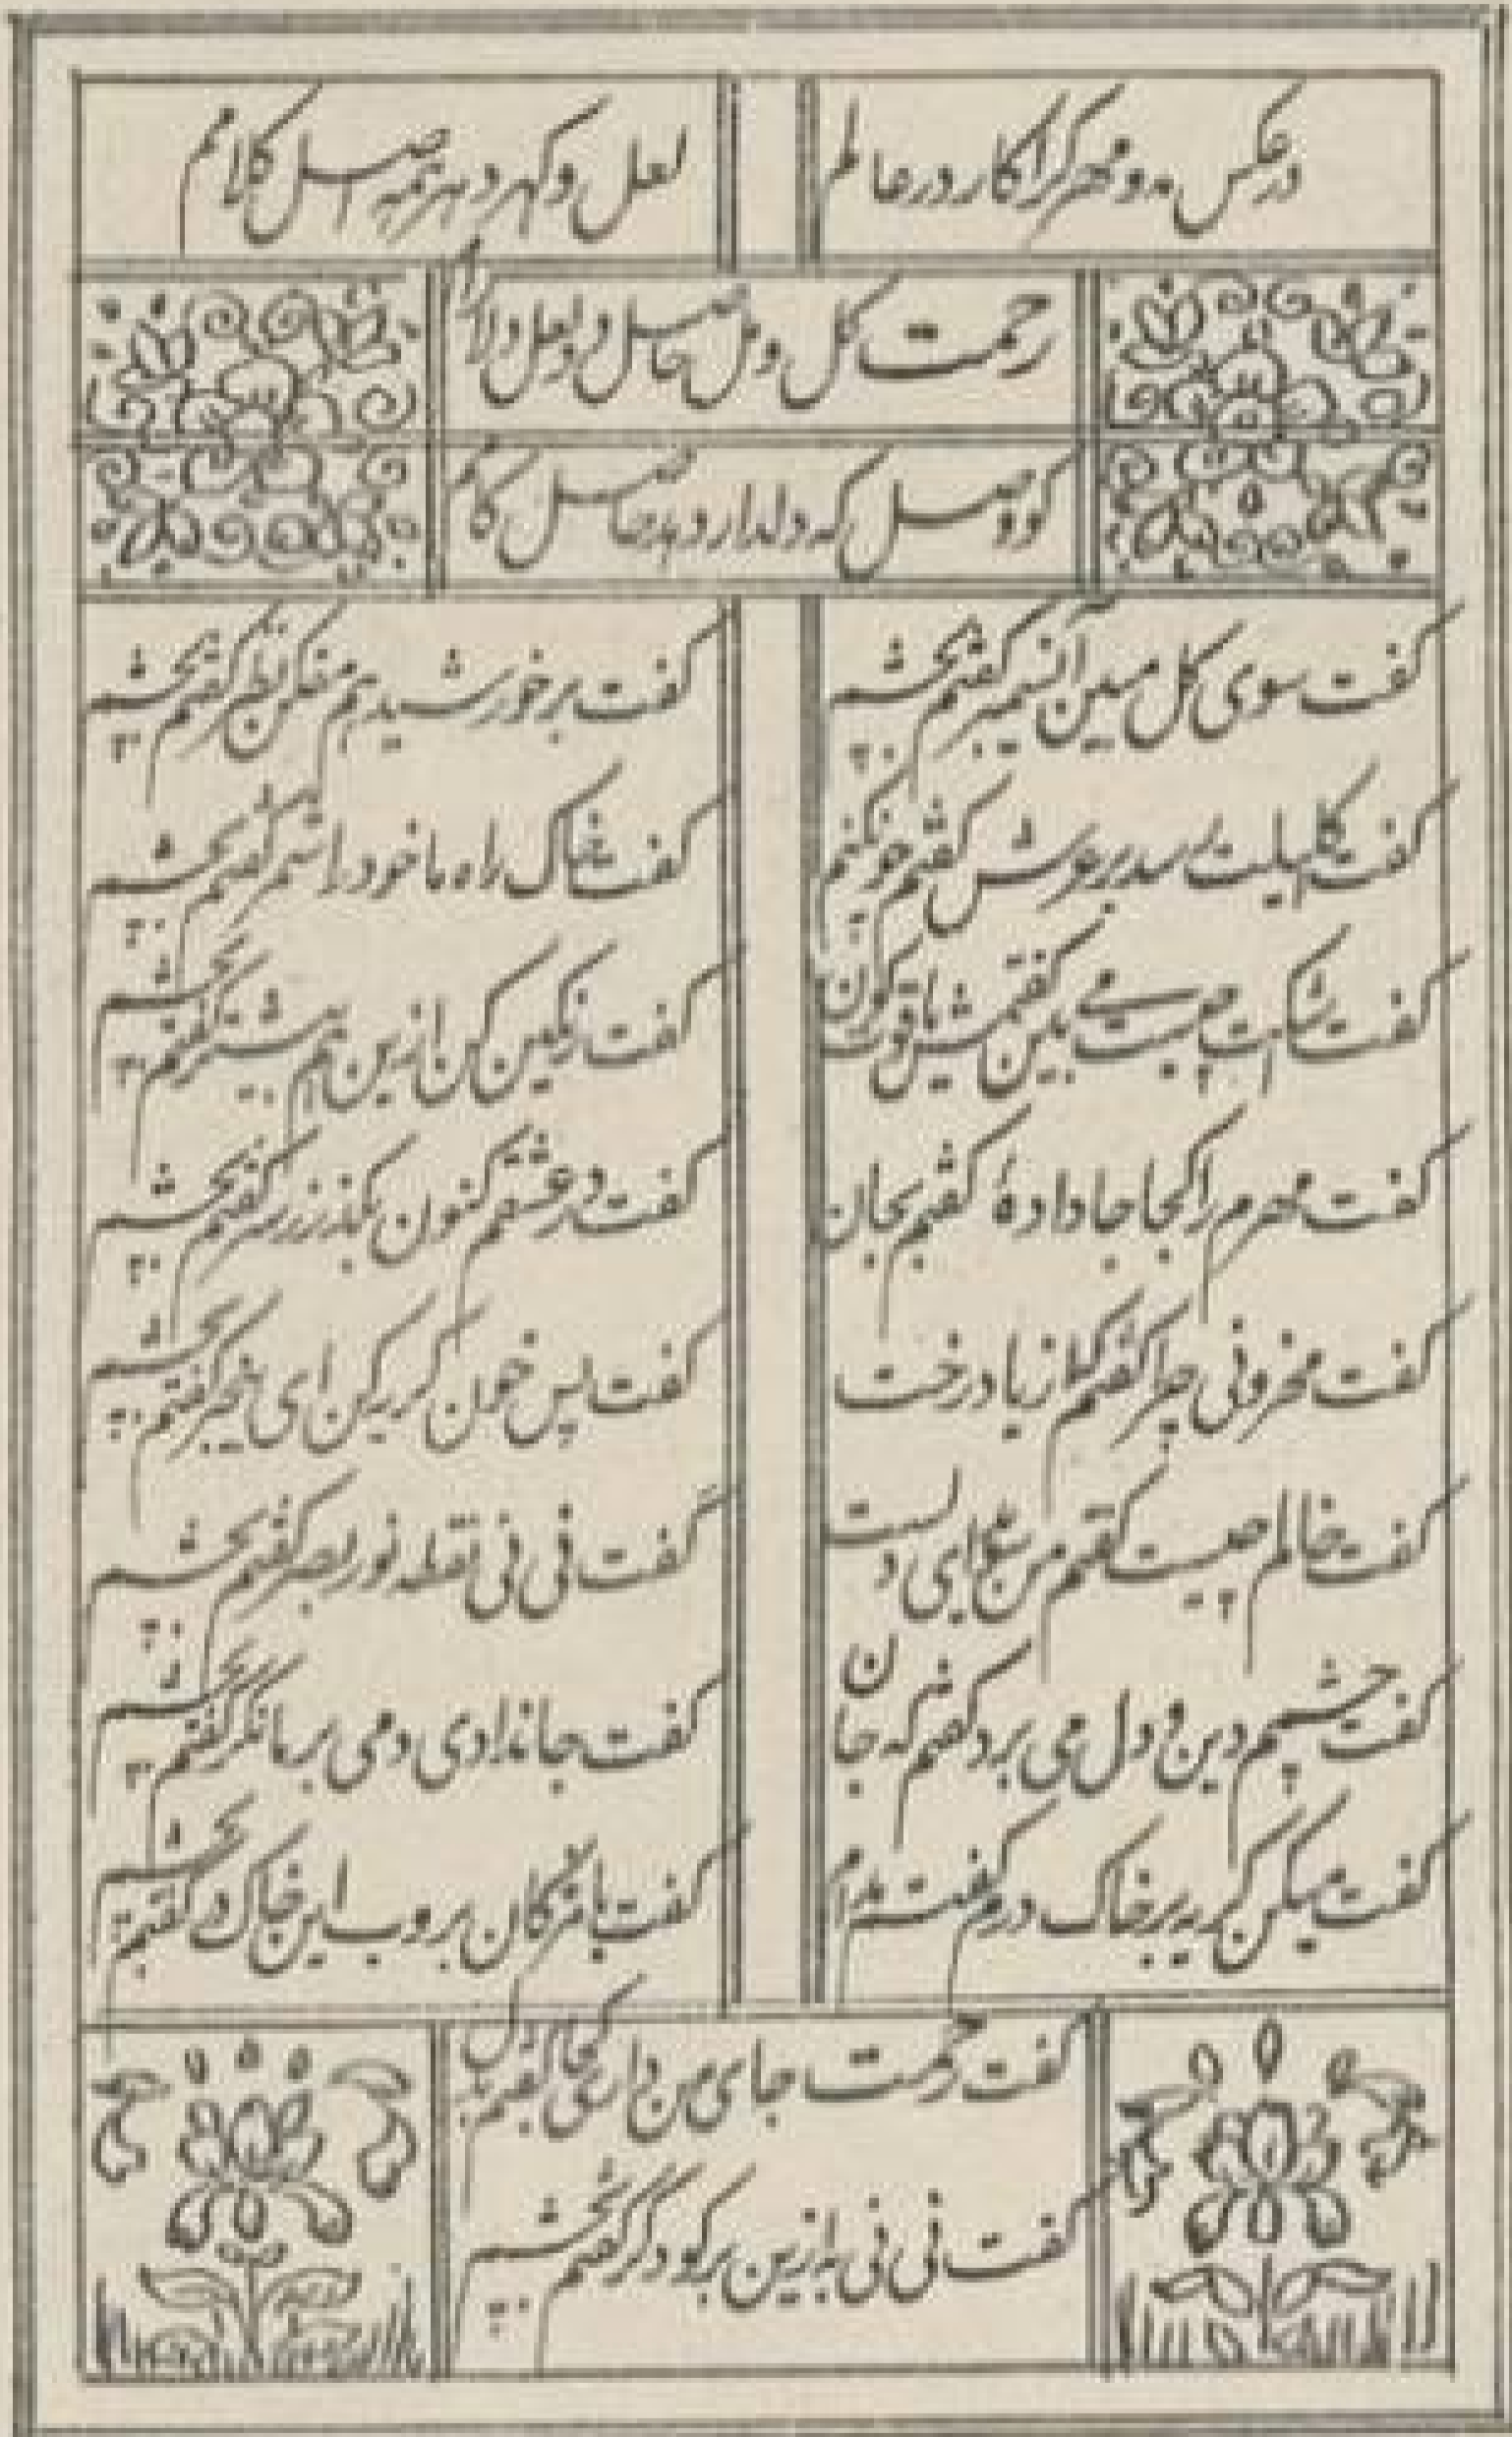 در عکس مه و مهر کرا کار در عالم
لعل و کهر د هر همه اصل کلامم
رحمت کل و مل حاصل و لعل دلارام
کو وصل که دلدار دهد حاصل کامم
کفت سوی کل مبین آنسیمبر کفتم بچشم
کفت بر خورشید هم مفکن نظر کفتم بچشم
کفت کاهیلت رسد بر عرش کفتم خون کنم
کفت خاک راه ما خود را شمر کفتم بچشم
کفت اشکت چیست می بین کفتمش یاقوت کون
کفت رنکین کن ازین هم بیشتر کفتم بچشم
کفت مهرم را کجا جا دادهٔ کفتم بجان
کفت در عشقم کنون بکذر ز سر کفتم بچشم
کفت محزونی چرا کفتم کلم از یاد رخت
کفت پس خون کریه کن ای بیخبر کفتم بچشم
کفت خالم چیست کفتم من ای دل است
کفت نی نی نقطه نور بصر کفتم بچشم
کفت چشمم دین و دل می برد کفتم که جان
کفت جاندادی دمی بر ما نکر کفتم بچشم
کفت میکن کریه بر خاک درم کفتم
کفت با مژکان بروب این خاک در کفتم بچشم
کفت رحمت جای من داری کجا کفتم بدل
کفت نی نی به ازین بر کو دکر کفتم بچشم